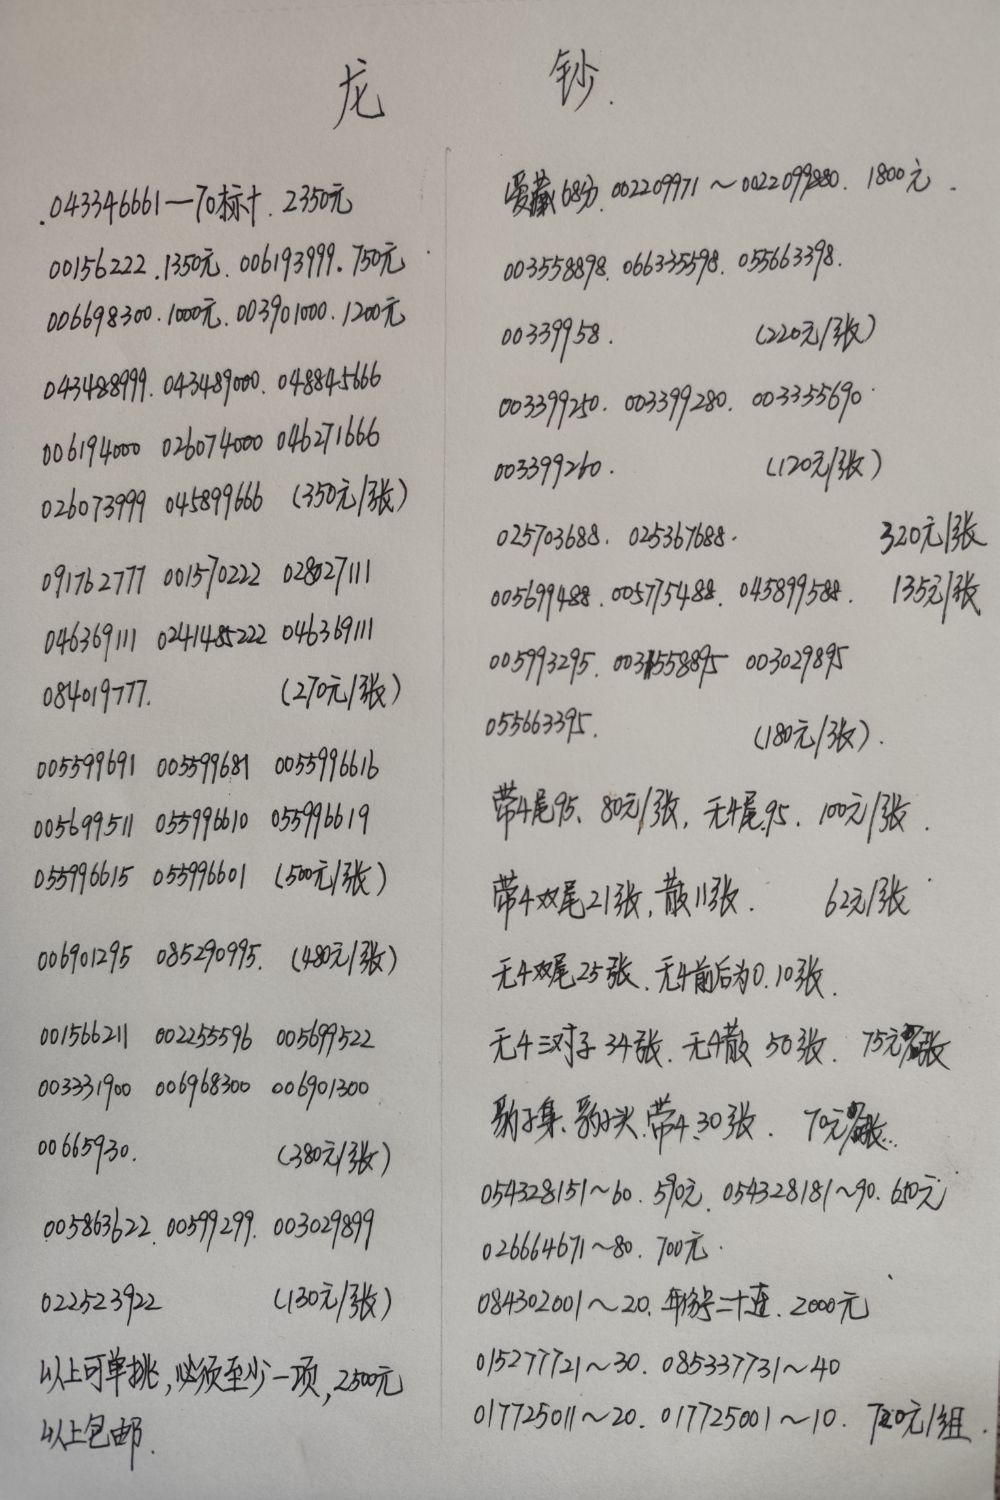 龙 钞.
.043346661—70标十. 2350元
00156222.1350元. 006193999.750元
006698300.1000元. 003901000.1200元
043488999. 043489000. 048845666
006194000 026074000 046271666
026073999 045899666 (350元/张)
091762777 001570222 028027111
046369111 0241485222 046369111
084019777. (270元/张)
005599691 005599681 0055996616
005699511 055996610 055996619
055996615 055996601 (500元/张)
006901295 085290995. (480元/张)
001566211 002255596 005699522
003331900 006968300 006901300
00665930. (380元/张)
005863622. 00599299. 003029899
022523922 (130元/张)
以上可单挑,必须至少一项,2500元
以上包邮.
爱藏68分. 002209971~0022099880. 1800元.
003558898. 066335598. 055663398.
00339958. (220元/张)
003399250. 003399280. 003355690.
003399260. (120元/张)
025703688. 025367688. 320元/张
005699488. 005775488. 045899588. 135元/张
005993295. 0031558895 003029895
055663395. (180元/张).
带4尾95、80元/张, 无4尾.95. 100元/张.
带4双尾21张,散11张. 62元/张
无4双尾25张.无4前后为0.10张.
无4三对子34张.无4散 50张. 75元/张
豹子集、豹子头.带4.30张. 70元/张..
054328151~60. 590元. 054328181~90. 元
026664671~80. 700元.
084302001~20. 年份号二十连. 2000元
015277721~30. 085337731~40
017725011~20. 017725001~10. 元/组.